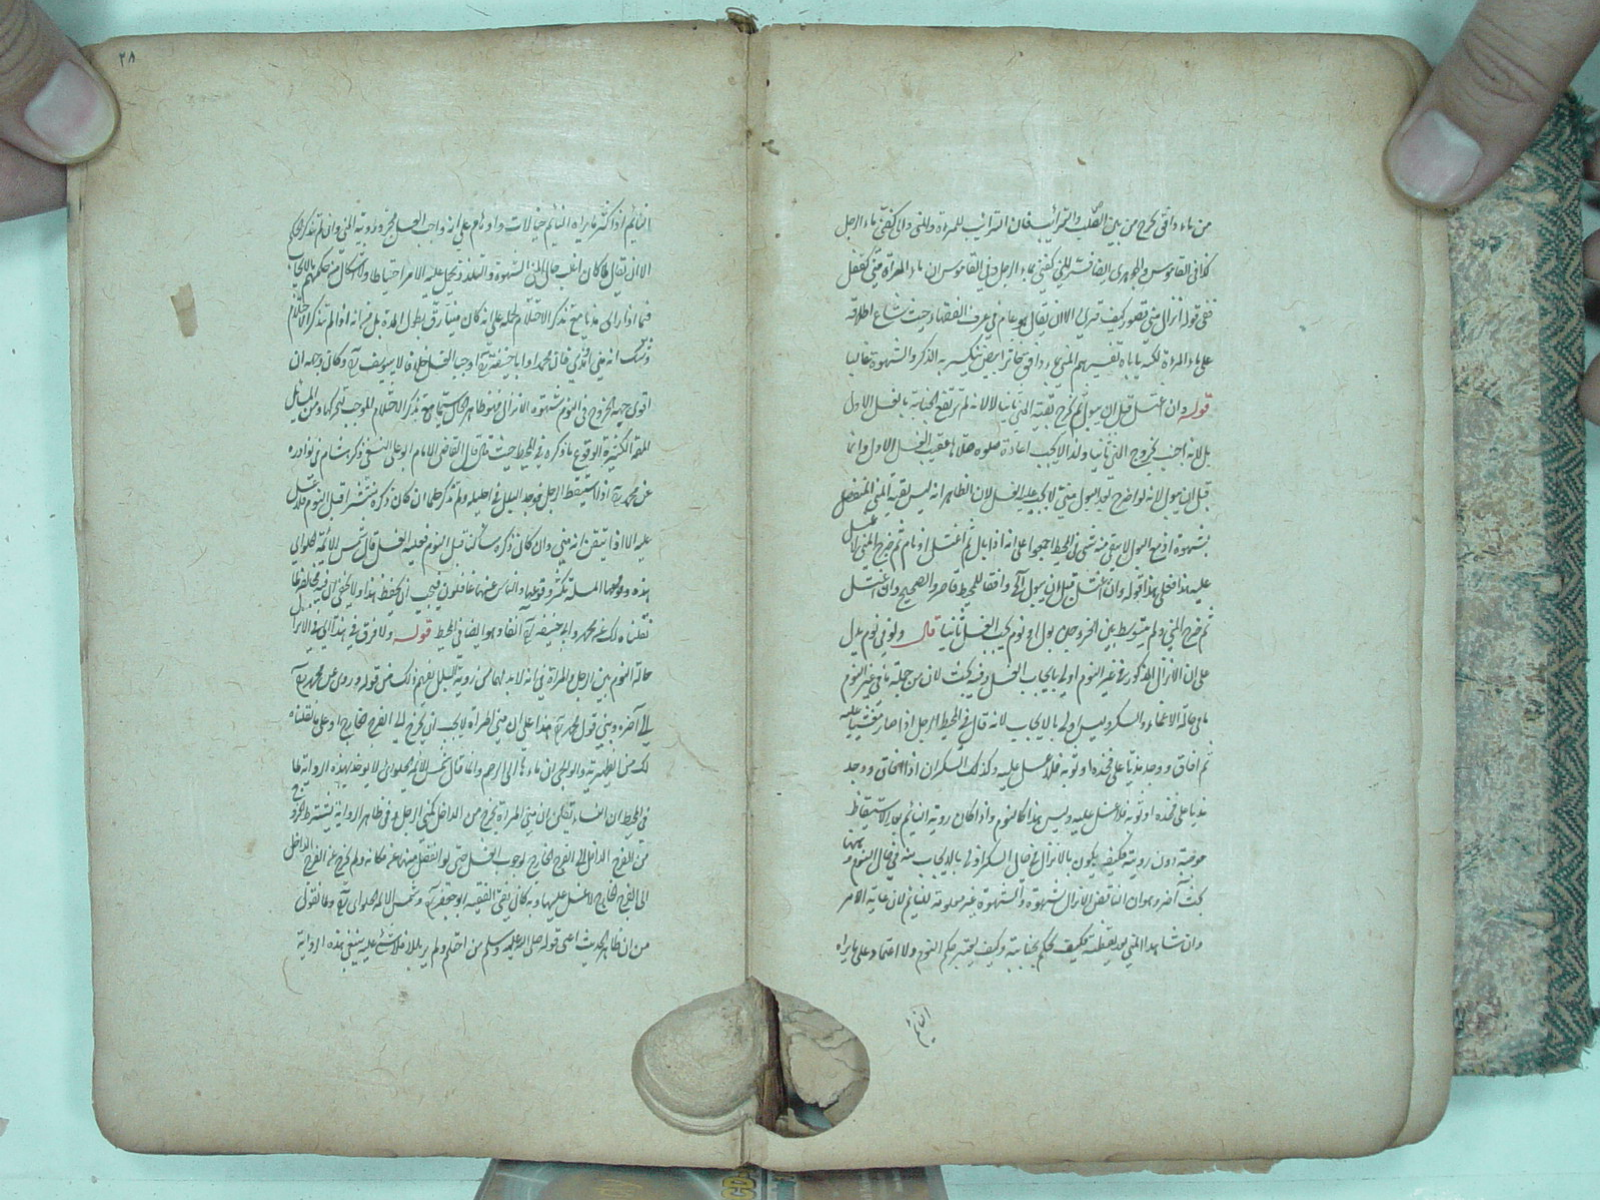 من ماء دافق يخرج من بين الصلب والترائب فان الترائب للمرأة والمني والى كغني ماء الرجل
كذا في القاموس والجوهري ايضا فسر المني كغني بماء الرجل وفي القاموس ان ماء المرأة مني كغفل
ففي قوله انزال مني قصور كيف قدري الا ان يقال هو عام في عرف الفقهاء حيث شاع اطلاقه
على ماء المرأة لكنه ياباه تفسيرهم المني بماء دافق خاثر ابيض ينكسر به الذكر والشهوة غالبا
قوله وان اغتسل قبل ان يبول ثم خرج بقية المني ثانيا لا لانه لم يرتفع الجنابة بالغسل الاول
بل لانه اجنب بخروج المني ثانيا ولذا لا يجب اعادة صلوة صلاها عقيب الغسل الاول وانما
قيل ان يبول لانه لو اخرج بعد البول مني لا يجب عليه الغسل لان الظاهر انه ليس بقية المني المنفصل
بشهوة اذ مع البول لا يبقى منه شئ في المحيط اجمعوا على انه اذا بال ثم اغتسل او نام ثم خرج المني لا غسل
عليه هذا فعلى هذا قوله وان اغتسل قبل ان يبول الخ وافقا للمحيط قاصر والصحيح وان اغتسل
ثم خرج المني ولم يتوسط بين الخروجين بول او نوم يجب الغسل ثانيا قال ولو في نوم يدل
على ان الانزال المذكور في غير النوم اولى بايجاب الغسل وفيه بحث لان من جملة ما في غير النوم
ما في حالة الاغماء والسكر وليس اولى بالايجاب لانه قال في المحيط الرجل اذا صار مغشيا عليه
ثم افاق ووجد مذيا على فخذه او ثوبه فلا غسل عليه وكذلك السكران اذا افاق ووجد
مذيا على فخذه او ثوبه فلا غسل عليه وليس هذا كالنوم واذا كان روية النائم بعد الاستيقاظ
موجبة دون رويته فكيف يكون بالانزال في حال السكر اولى بالايجاب منه في حال النوم وههنا
بحث آخر وهو ان الناقض الانزال بشهوة والشهوة غير معلومة للنائم لان غاية الامر
وان شاهد المني بعد يقظته فكيف يحكم بجنابته وكيف يعتبر حكم النوم ولا اعتماد على ما يراه
النائم
٢٨
النائم اذ اكثر ما يراه النائم خيالات واوهام على انه واجب الغسل بمجرد روية المني وان لم يتذكر الاحتلام
الا ان يقال لما كان اغلب حال المني الشهوة والتلذذ يحمل عليه الامر احتياطا ولا اشكال من حكمهم بالايجاب
فيما اذا راى مذيا مع تذكر الاحتلام لحمله على انه كان منيا رق بطول المدة بل فيه انه اذا لم يتذكر الاحتلام
وشك انه مني او مذي فان محمدا وابا حنيفة اوجبا الغسل خلافا لابي يوسف وكان وجهه ان
اقوى جهة الخروج في النوم شهوة الانزال فهو ظاهر الحال سيما مع تذكر الاحتلام للوجب تحركها ومن المسائل
المهمة الكثيرة الوقوع ما ذكره في المحيط حيث قال قال القاضي الامام ابو علي النسفي ذكر هشام في نوادره
عن محمد اذا استيقظ الرجل فوجد البلل في احليله ولم يتذكر حلما ان كان ذكره منتشرا قبل النوم فلا غسل
عليه الا اذا تيقن انه مني وان كان ذكره ساكنا قبل النوم فعليه الغسل قال شمس الائمة الحلواني
هذه المسئلة تكثر وقوعها والناس عنها غافلون فيجب ان يحفظ هذا ولا يخفى ان فيه مخالفة لما
نقلناه لك عن محمد وابي حنيفة آنفا وهو ايضا في المحيط قوله ولا فرق في هذا اي في الانزال
حالة النوم بين الرجل والمرأة في انه لا بد لهما من روية البلل يفهم ذلك من قوله وروى عن محمد
الى آخره ويبتني قول محمد هذا على ان مني المرأة لا يجب ان يخرج الى الفرج الخارج وعلى ما نقلناه
لك من الظهيرية والولوالجي ان ماءها الى الرحم وانما قال شمس الائمة الحلواني لا يوخذ بهذه الرواية لما
في المحيط ان النساء يقلن ان مني المرأة يخرج من الداخل كمني الرجل وفي ظاهر الرواية يشترط الخروج
من الفرج الداخل الى الفرج الخارج لوجوب الغسل حتى لو انفصل منيها عن مكانه ولم يخرج عن الفرج الداخل
الى الفرج الخارج لا غسل عليها وبه كان يفتي الفقيه ابو جعفر وشمس الائمة الحلواني وما نقول
من ان ظاهر الحديث اعني قوله صلى الله عليه وسلم من احتلم ولم ير بللا فلا شئ عليه ينبغي بهذه الرواية